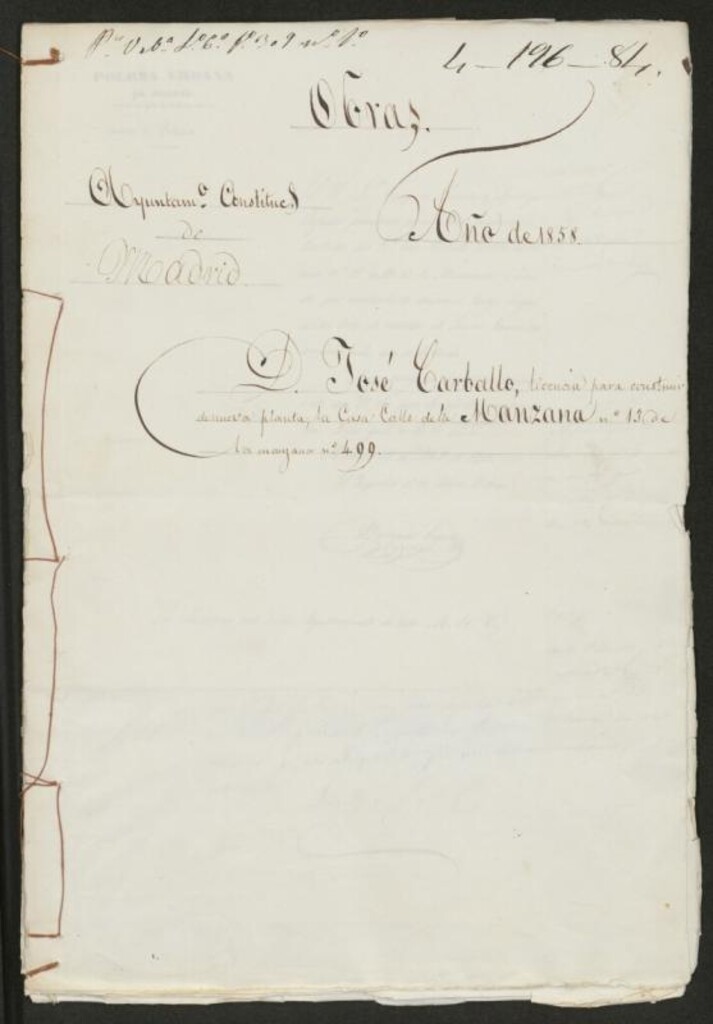 4 - 196 - 84.
Obras.
Ayuntam.º Constituc.l
de
Madrid
Año de 1858.
D. José Carballo, licencia para construir
de nueva planta, la Casa Calle de la Manzana n.º 13 de
la manzana n.º 499.